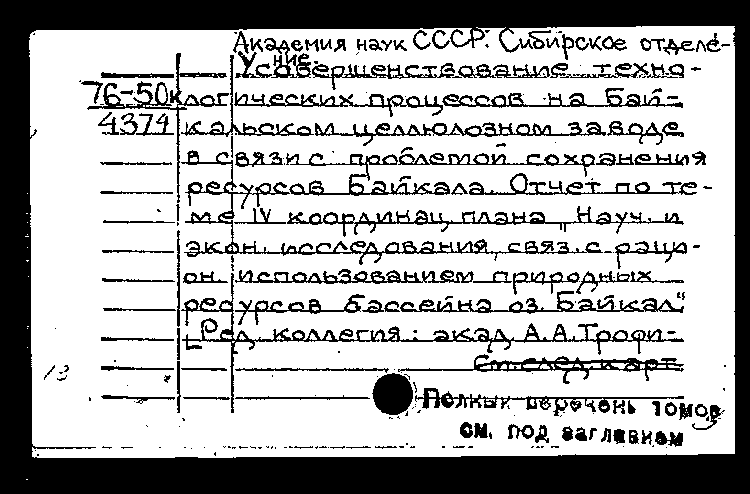 Академия наук СССР. Сибирское отделе-
ние.
Усовершенствование техно-
76-50к логических процессов на Бай-
4374 кальском целлюлозном заводе
в связи с проблемой сохранения
ресурсов Байкала. Отчет по те-
ме IV координац. плана „Науч. и
экон. исследования, связ. с раци-
он. использованием природных
ресурсов бассейна оз. Байкал"
[Ред. коллегия: акад. А.А.Трофи-
См. след. карт.
13
Полный перечень томов
см. под заглавием